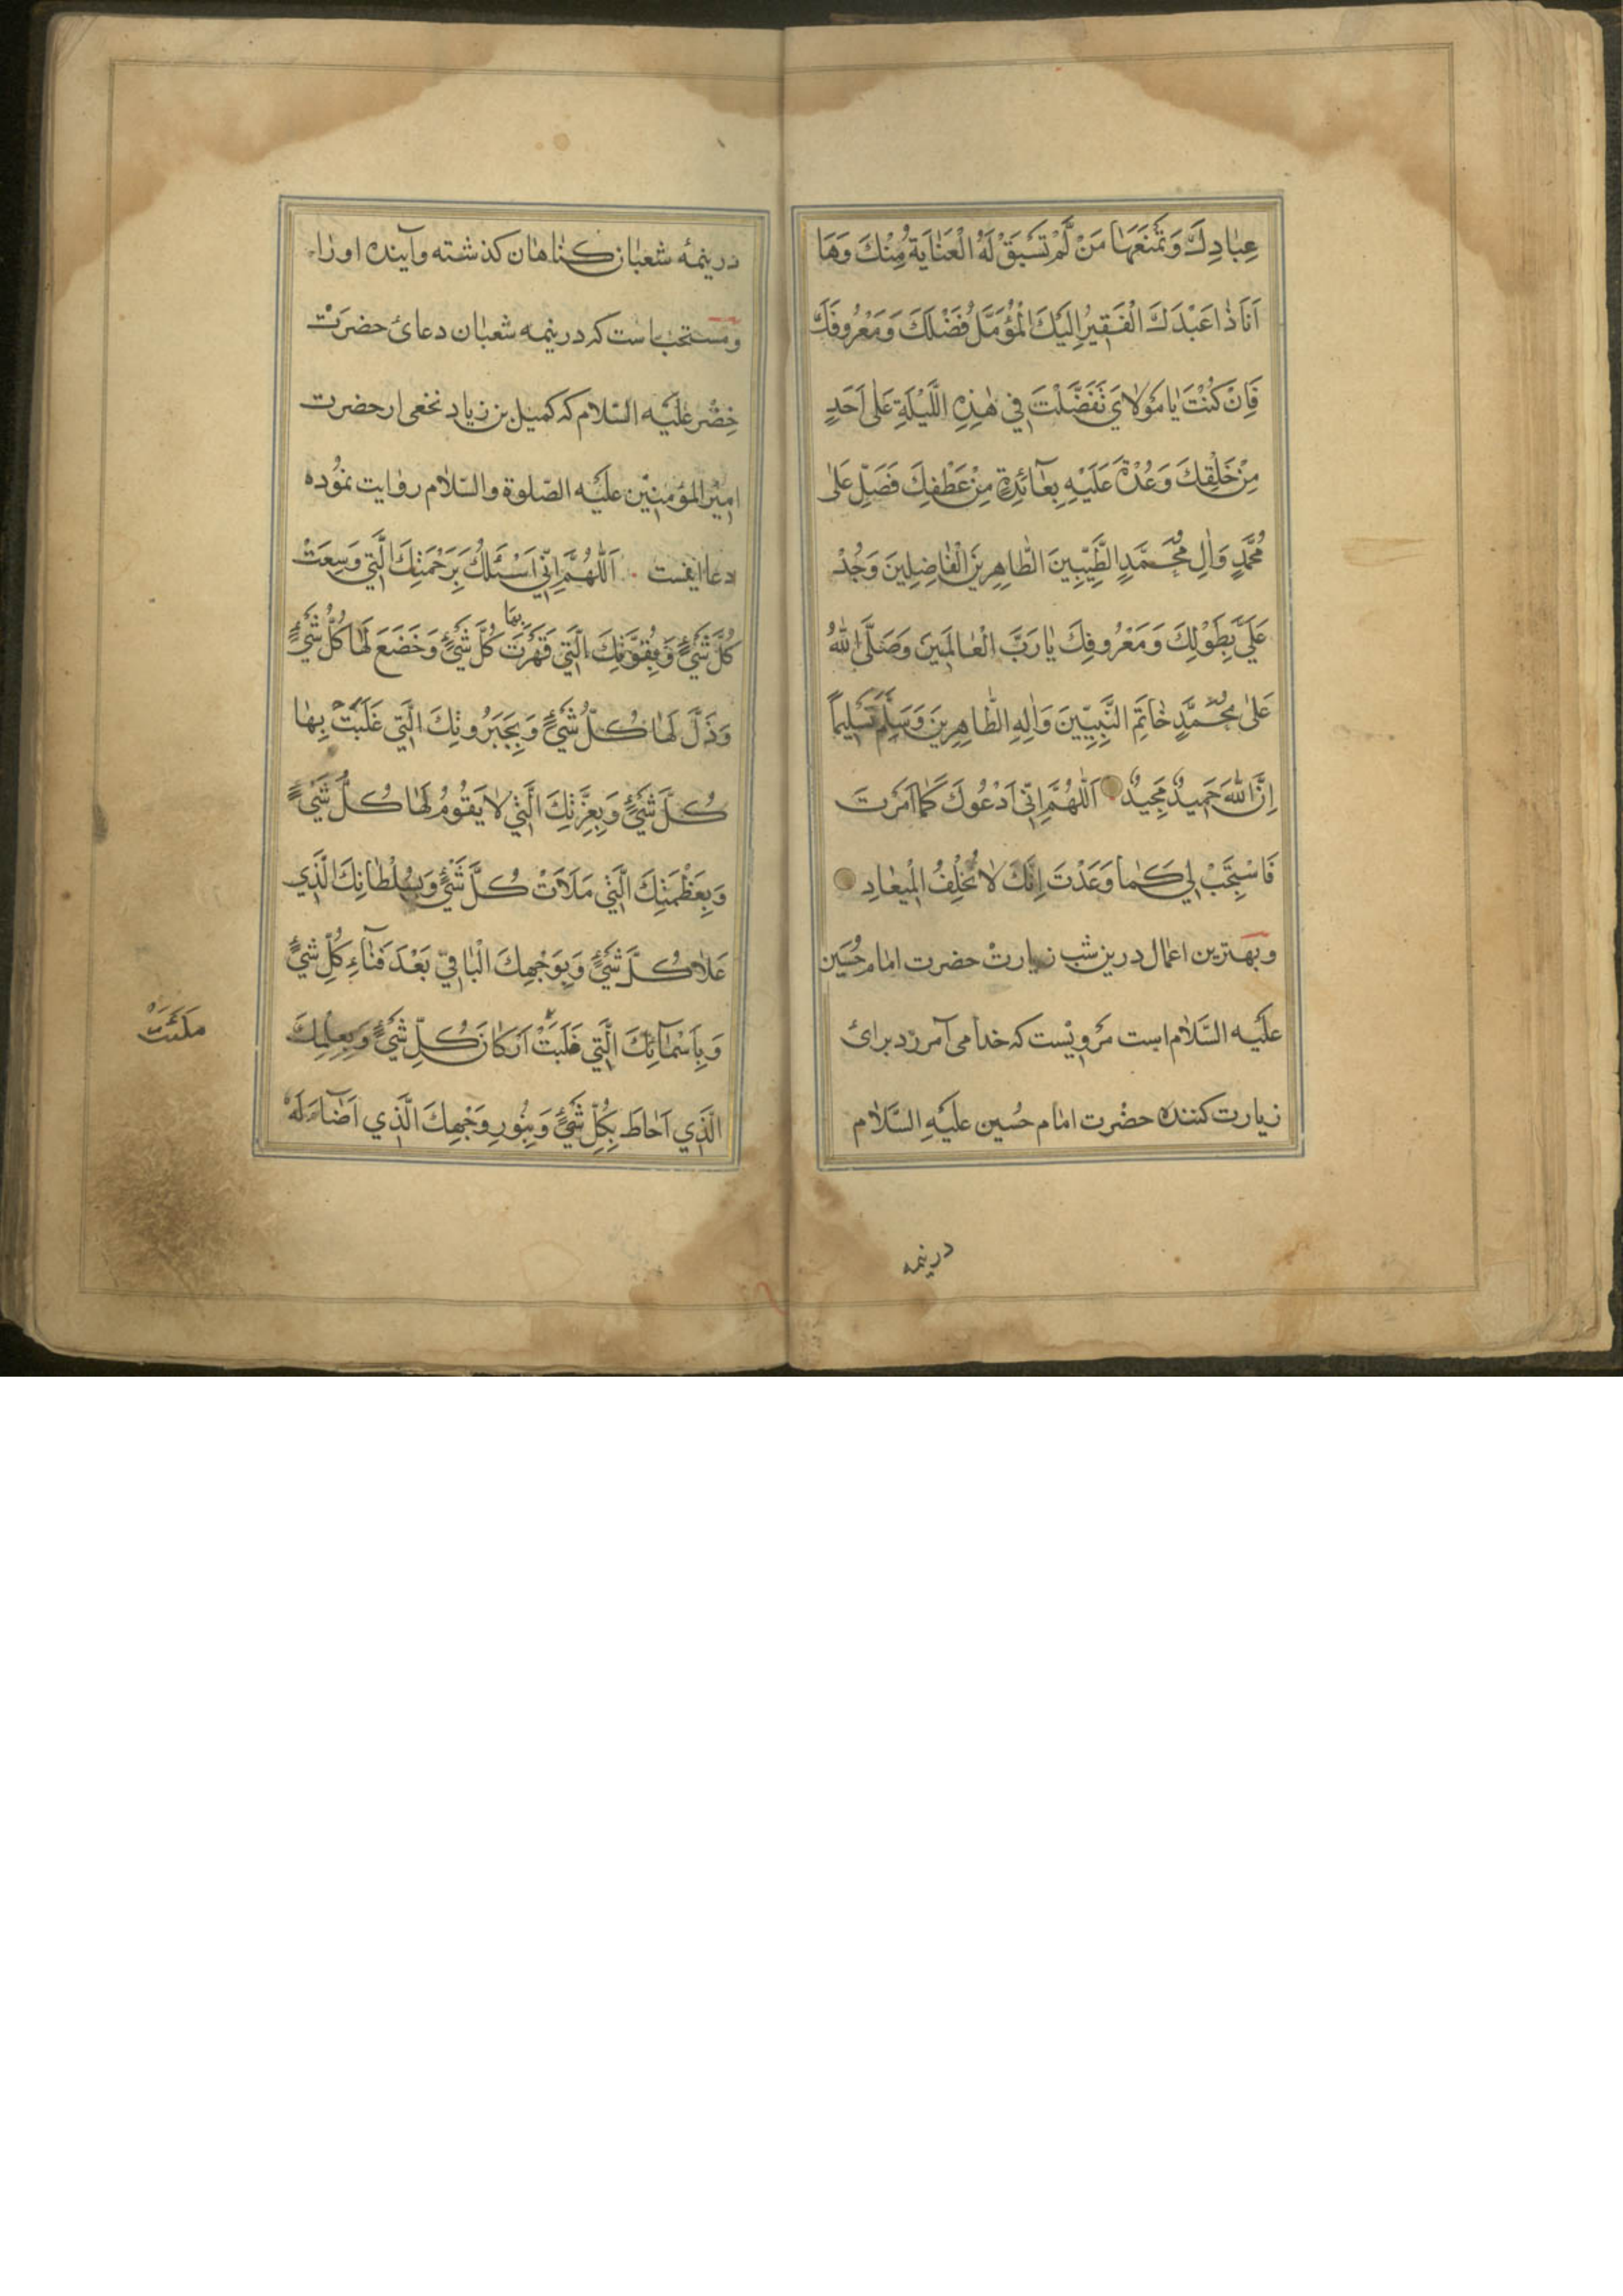 عِبٰادِكَ وَتَمْنَعَهٰا مَنْ لَمْ تَسْبَقْ لَهُ الْعَنٰايَةُ مِنْكَ وَهَا
اَنَاَ ذٰا عَبْدَكَ الْفَقِيرُ اِلَيْكَ الْمُؤَمَّلُ فَضْلَكَ وَمَعْرُوفَكَ
فَاِنْ كُنْتَ يٰا مَوْلاٰيَ تَفَضَّلْتَ فِي هٰذِهِ اللَّيْلَةِ عَلىٰ اَحَدٍ
مِنْ خَلْقِكَ وَعُدْتَ عَلَيْهِ بِعٰآئِدَةٍ مِنْ عَطْفِكَ فَصَلِّ عَلىٰ
مُحَمَّدٍ وَاٰلِ مُحَمَّدٍ الطَّيِّبِينَ الطّٰاهِرِينَ الْفٰاضِلِينَ وَجُدْ
عَلَيَّ بِطَوْلِكَ وَمَعْرُوفِكَ يٰا رَبَّ الْعٰالَمِينَ وَصَلَّى اللّٰهُ
عَلىٰ مُحَمَّدٍ خٰاتَمِ النَّبِيِّينَ وَاٰلِهِ الطّٰاهِرِينَ وَسَلَّمَ تَسْلِيماً
اِنَّ اللّٰهَ حَمِيدٌ مَجِيدٌ اَللّٰهُمَّ اِنِّي اَدْعُوكَ كَمٰا اَمَرْتَ
فَاسْتَجِبْ لِي كَمٰا وَعَدْتَ اِنَّكَ لاٰ تُخْلِفُ الْمِيعٰادِ
وبهترین اعمال درین شب زیارت حضرت امام حُسَین
عَلَیه السَّلاٰم است مَرویْست که خدا می آمرزد برائ
زیارت کننده حضْرت امٰام حُسین علَیهِ السَّلاٰم
درنیمه
درنیمهٔ شعبٰان کنٰاهان کذشته وآینده اورٰا
ومستحب است که درنیمه شعبٰان دعائ حضرَتْ
خِضْر عَلیَه السّلام که کمیل بن زیاد نخعی از حضرت
امیْر المؤمنیْن علیَه الصّلوة والسّلاٰم روٰایت نمُوده
دعا اینست اَللّٰهُمَّ اِنِّي اَسْئَلُكَ بِرَحْمَتِكَ الَّتِي وَسِعَتْ
كُلَّ شَيْءٍ وَبِقُوَّتِكَ الَّتِي قَهَرْتَ بِهَا كُلَّ شَيْءٍ وَخَضَعَ لَهٰا كُلُّ شَيْءٍ
وَذَلَّ لَهٰا كُلُّ شَيْءٍ وَبِجَبَرُوتِكَ الَّتِي غَلَبْتَ بِهٰا
كُلَّ شَيْءٍ وَبِعِزَّتِكَ الَّتِي لاٰ يَقُومُ لَهٰا كُلُّ شَيْءٍ
وَبِعَظَمَتِكَ الَّتِي مَلَاَتْ كُلَّ شَيْءٍ وَبِسُلْطٰانِكَ الَّذِي
عَلاٰ كُلَّ شَيْءٍ وَبِوَجْهِكَ الْبٰاقِي بَعْدَ فَنٰآءِ كُلِّ شَيْءٍ
وَبِاَسْمٰآئِكَ الَّتِي غَلَبَتْ اَرْكٰانَ كُلِّ شَيْءٍ وَبِعِلْمِكَ
الَّذِي اَحٰاطَ بِكُلِّ شَيْءٍ وَبِنُورِ وَجْهِكَ الَّذِي اَضٰآءَ لَهُ
مَلَئَتْ